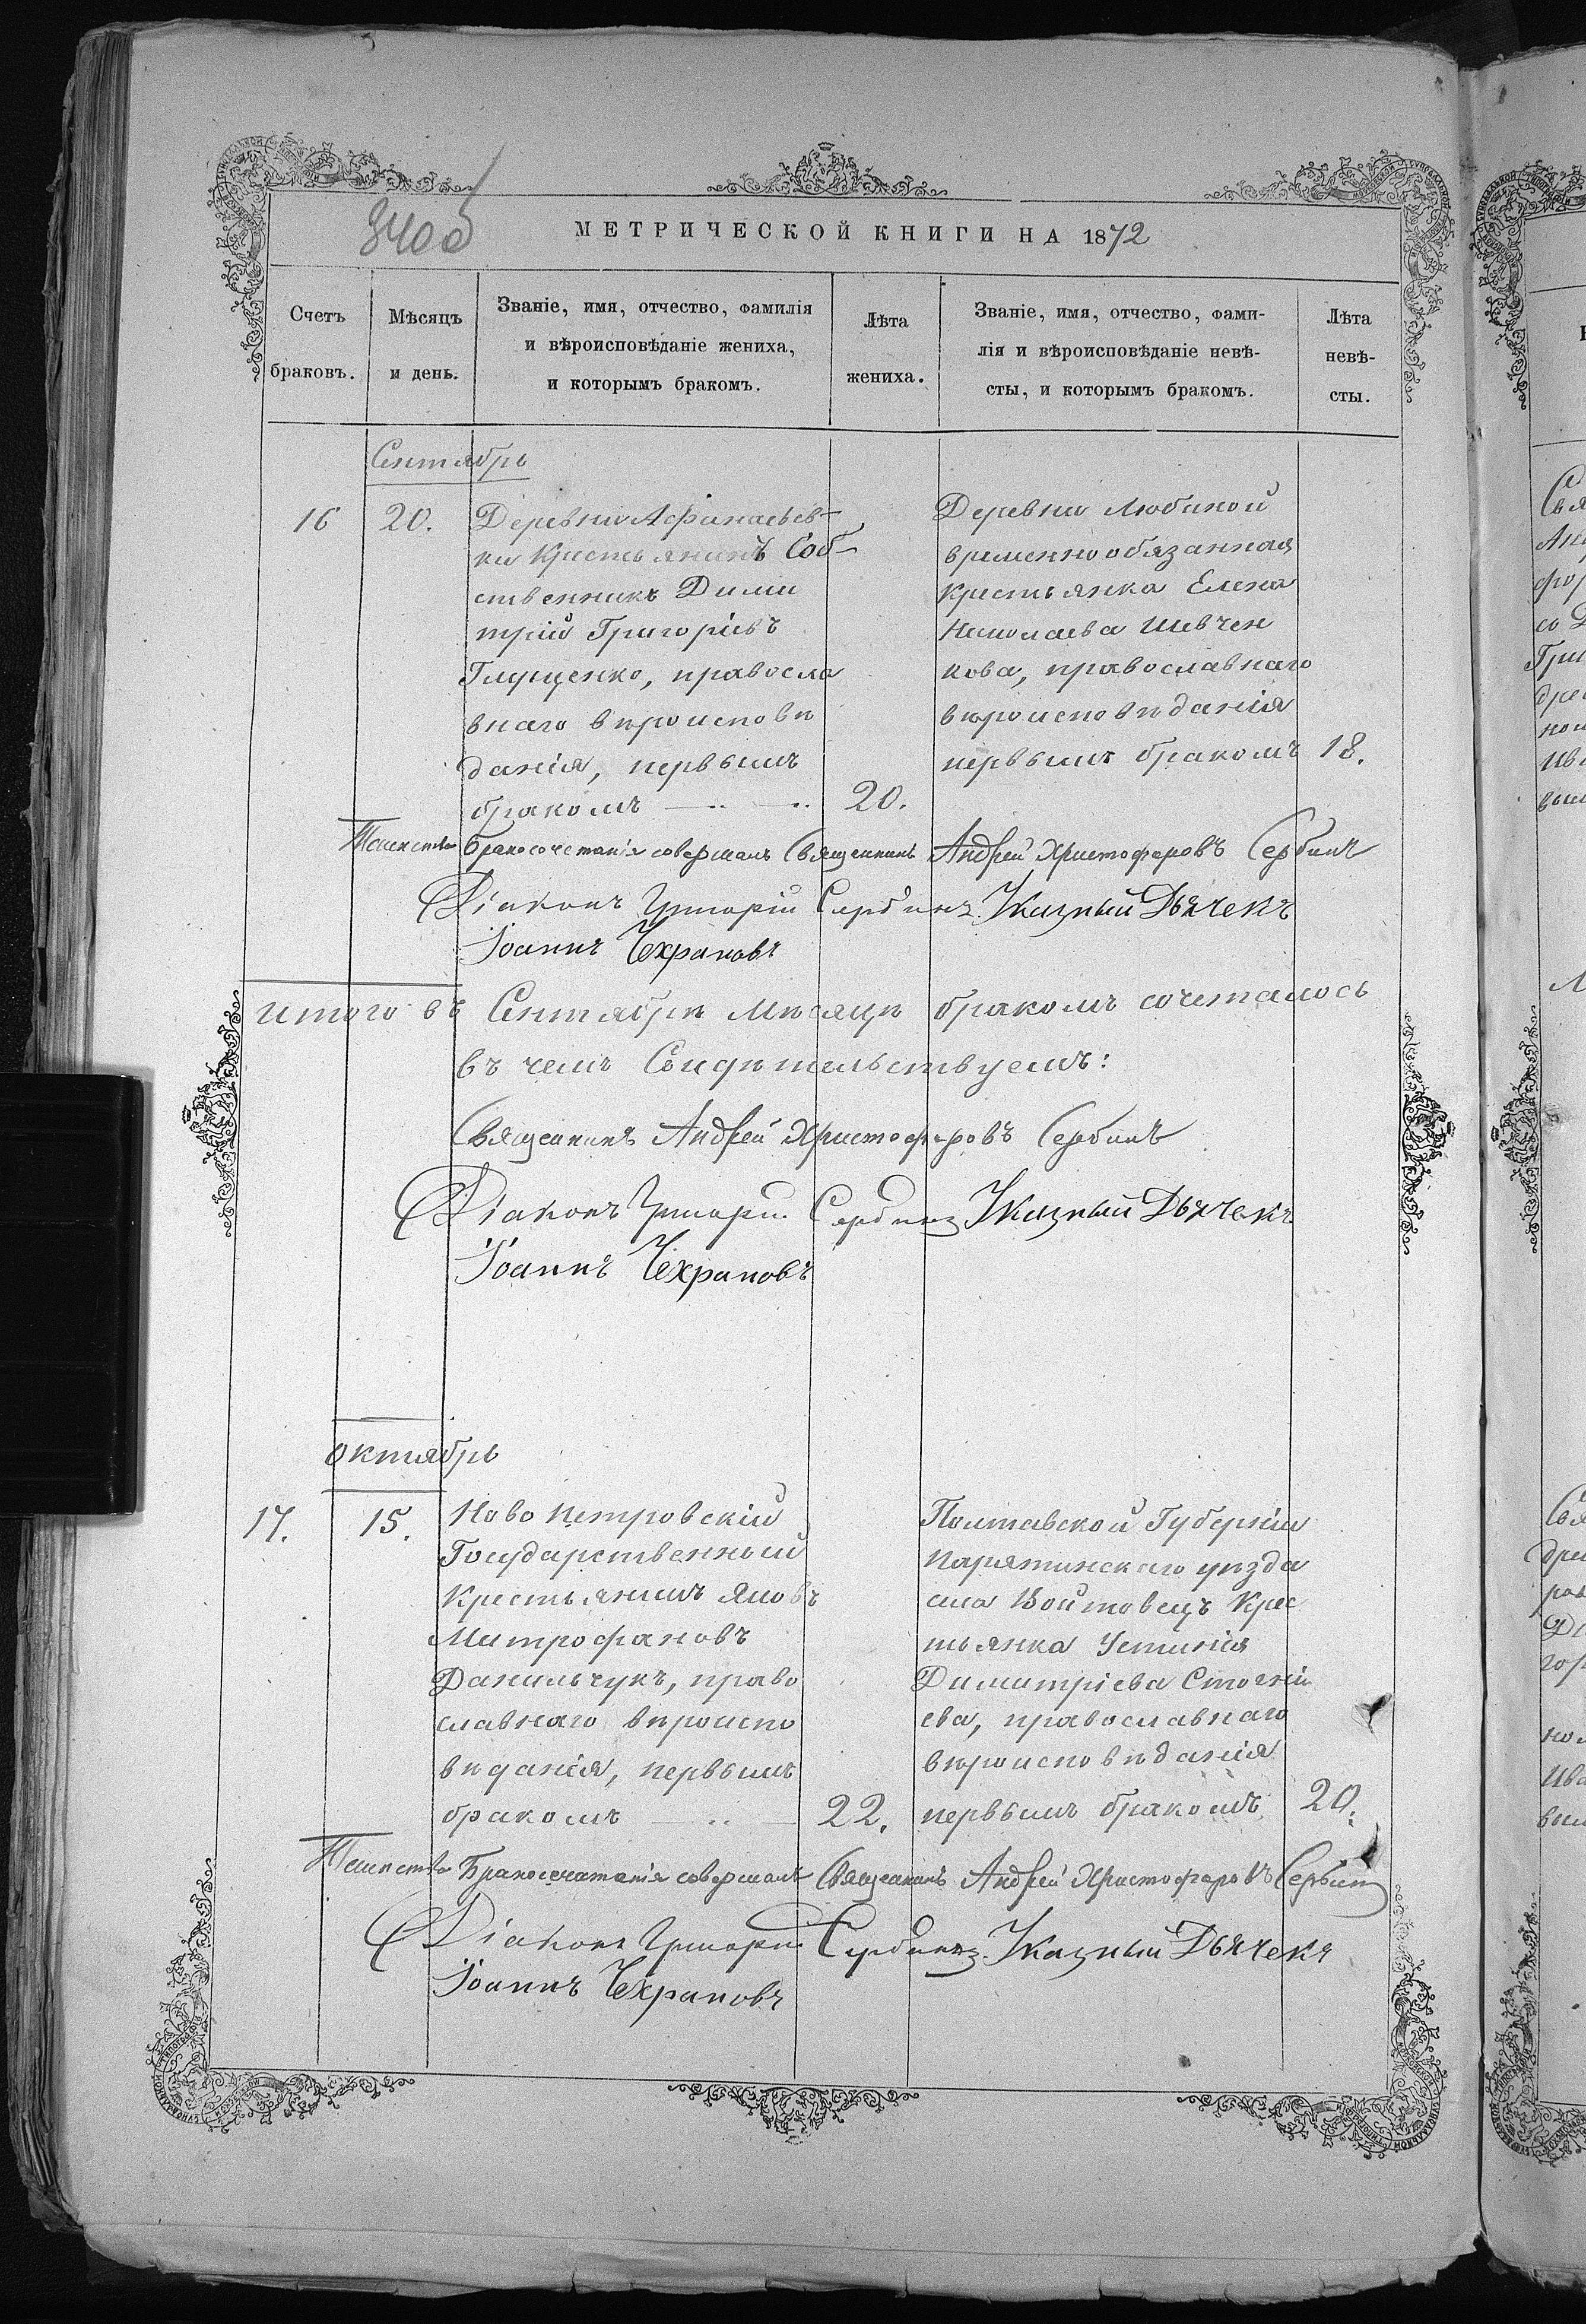 340об
МЕТРИЧЕСКОЙ КНИГИ НА 1872
Счетъ браковъ.
Мѣсяцъ и день.
Званіе, имя, отчество, фамилія
и вѣроисповѣданіе жениха,
и которымъ бракомъ.
Лѣта
жениха.
Званіе, имя, отчество, фами-
лія и вѣроисповѣданіе невѣ-
сты, и которымъ бракомъ.
Лѣта
невѣ-
сты.
Сентябрь
16
20.
Деревни Афанасьев-
ки Крестьянинъ Соб-
ственникъ Дими
трій Григоріевъ
Глущенко, правосла
внаго вѣроисповѣ
данія, первымъ
бракомъ
20.
Деревни Любиной
временнообязанная
крестьянка Елена
Николаева Шевчен
кова, православнаго
вѣроисповѣданія
первымъ бракомъ
18.
Таинство Бракосочетанія совершалъ Священникъ Андрей Христофоровъ Сербинъ
Діаконъ Григорій Сербинъ Указный Дьячекъ
Іоаннъ Чехрановъ
Итого въ Сентябрѣ Мѣсяцѣ бракомъ сочеталось
въ чемъ Свидѣтельствуемъ:
Священникъ Андрей Христофоровъ Сербинъ
Діаконъ Григорій Сербинъ Указный Дьячекъ
Іоаннъ Чехрановъ
Октябрь
17.
15.
Ново Петровскій
Государственный
Крестьянинъ Яковъ
Митрофановъ
Данильчукъ, право
славнаго вѣроиспо
вѣданія, первымъ
бракомъ
22.
Полтавской Губерніи
Пирятинскаго уѣзда
села Войтовецъ Крес
тьянка Устинія
Димитріева Стогній
ева, православнаго
вѣроисповѣданія
первымъ бракомъ
20.
Таинство Бракосочетанія совершалъ Священникъ Андрей Христофоровъ Сербинъ
Діаконъ Григорій Сербинъ Указный Дьячекъ
Іоаннъ Чехрановъ